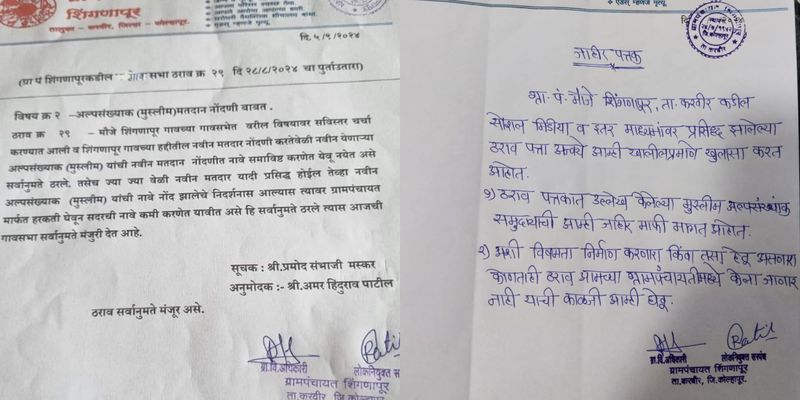 शिंगणापूर
तालुका - करवीर, जिल्हा - कोल्हापूर.
दि. ५/९/२०२४
(ग्रा पं शिंगणापूरकडील सभा ठराव क्र २९ दि २८/८/२०२४ चा पुर्ताउतारा)
विषय क्र २ –अल्पसंख्याक (मुस्लीम)मतदान नोंदणी बाबत.
ठराव क्र २९ - मौजे शिंगणापूर गावच्या गावसभेत वरील विषयावर सविस्तर चर्चा
करण्यात आली व शिंगणापूर गावच्या हद्दीतील नवीन मतदार नोंदणी करतेवेळी नवीन येणाऱ्या
अल्पसंख्याक (मुस्लीम) यांची नवीन मतदान नोंदणीत नावे समाविष्ठ करणेत येवू नयेत असे
सर्वानुमते ठरले. तसेच ज्या ज्या वेळी नवीन मतदार यादी प्रसिद्ध होईल तेव्हा नवीन
अल्पसंख्याक (मुस्लीम) यांची नावे नोंद झालेचे निदर्शनास आल्यास त्यावर ग्रामपंचायत
मार्फत हरकती घेवून सदरची नावे कमी करणेत यावीत असे हि सर्वानुमते ठरले त्यास आजची
गावसभा सर्वानुमते मंजुरी देत आहे.
सूचक : श्री.प्रमोद संभाजी मस्कर
अनुमोदक :- श्री.अमर हिंदुराव पाटील
ठराव सर्वानुमते मंजूर असे.
ग्रा.वि.अधिकारी लोकनियुक्त
ग्रामपंचायत शिंगणापूर
ता.करवीर, जि.कोल्हापूर.
एडस् म्हणजे मृत्यू.
जाहिर पत्रक
ग्रा. पं. मौजे शिंगणापूर, ता. करवीर कडील
सोशल मिडिया व इतर माध्यमांवर प्रसिद्ध झालेल्या
ठराव पत्रा अन्वये आम्ही खालीलप्रमाणे खुलासा करत
आहोत.
१) ठराव पत्रकात उल्लेख केलेल्या मुस्लीम अल्पसंख्यांक
समुदायाची आम्ही जाहिर माफी मागत आहोत.
२) अशी विषमता निर्माण करणारा किंवा तसा हेतू असणारा
कोणताही ठराव आमच्या ग्रामपंचायतीमध्ये केला जाणार
नाही याची काळजी आम्ही घेवू.
ग्रा.वि.अधिकारी लोकनियुक्त सरपंच
ग्रामपंचायत शिंगणापूर
ता.करवीर, जि.कोल्हापूर.